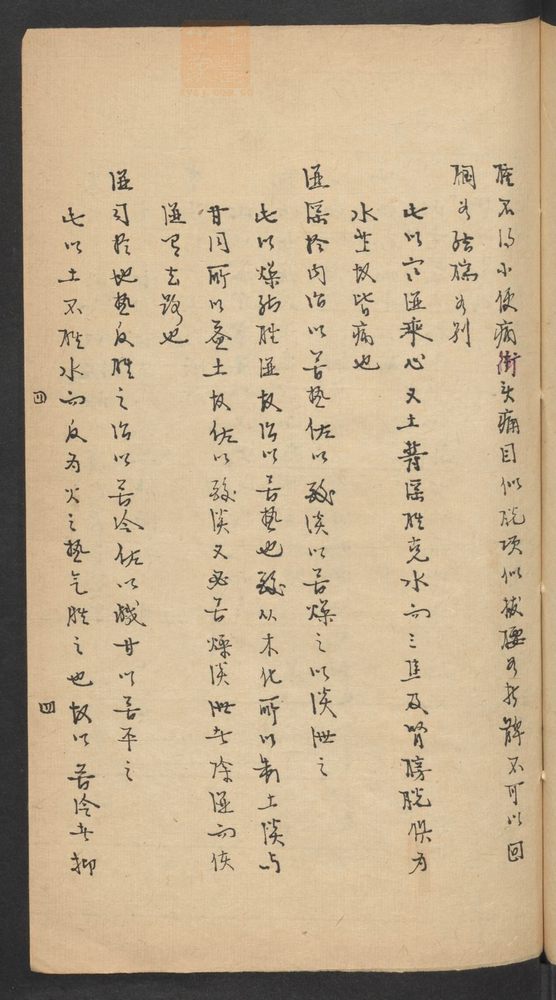 腫不得小便病衝頭痛目似脫項似拔腰如折髀不可以回
膕如結腨如別
此以寒濕乘心又土勝濕勝克水而三焦及腎膀胱俱為
水藏故皆病也
濕淫於内治以苦熱佐以酸淡以苦燥之以淡泄之
此以燥能勝濕故治以苦熱也酸從木化所以制土淡與
甘同所以益土故佐以酸淡又必苦燥淡泄者除濕而使
濕有去路也
濕司於地熱反勝之治以苦冷佐以鹹甘以苦平之
此以土不勝水而反為火之熱气勝之也故以苦冷者抑
四
四